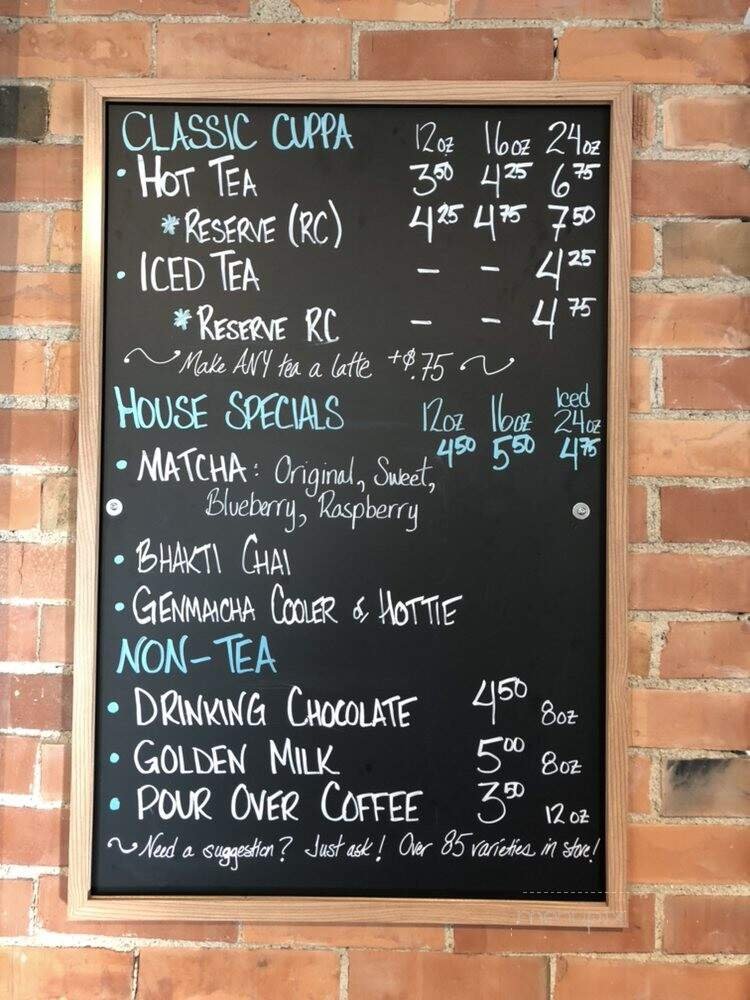 CLASSIC CUPPA 12oz 16oz 24oz
• HOT TEA 3.50 4.25 6.75
* RESERVE (RC) 4.25 4.75 7.50
• ICED TEA – – 4.25
* RESERVE RC – – 4.75
~ Make ANY tea a latte +$.75 ~
HOUSE SPECIALS 12oz 16oz Iced 24oz
4.50 5.50 4.75
• MATCHA: Original, Sweet,
Blueberry, Raspberry
• BHAKTI CHAI
• GENMAICHA COOLER & HOTTIE
NON-TEA
• DRINKING CHOCOLATE 4.50 8oz
• GOLDEN MILK 5.00 8oz
• POUR OVER COFFEE 3.50 12oz
~ Need a suggestion? Just ask! Over 85 varieties in store!